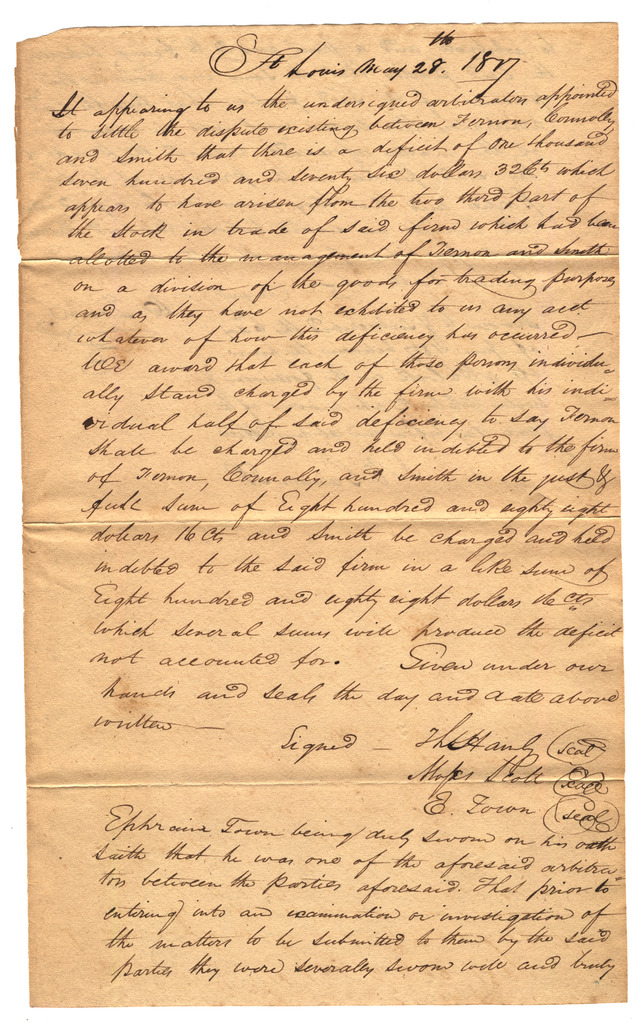 St Louis May 28th. 1817
It appearing to us the undersigned arbitrators appointed
to settle the dispute existing between Fernon, Connolly
and Smith that there is a deficit of one thousand
seven hundred and seventy six dollars 32 Cts which
appears to have arisen from the two third part of
the stock in trade of said firm which had been
allotted to the management of Fernon and Smith
on a division of the goods for trading purposes
and as they have not exhibited to us any acct
whatever of how this deficiency has occurred –
WE award that each of those persons individu=
ally stand charged by the firm with his indi=
vidual half of said deficiency to say Fernon
shall be charged and held indebted to the firm
of Fernon, Connolly, and Smith in the just &
full sum of Eight hundred and eighty eight
dollars 16 Cts and Smith be charged and held
indebted to the said firm in a like sum of
Eight hundred and eighty eight dollars 16 cts
which several sums will produce the deficit
not accounted for. Given under our
hands and seals the day and date above
written —
Signed – Thos Hanly (seal)
Moses Scott (seal)
E. Town (seal)
Ephraim Town being duly sworn on his oath
saith that he was one of the aforesaid arbitra=
tors between the parties aforesaid. That prior to
entering into an examination or investigation of
the matters to be submitted to them by the said
parties they were severally sworn well and truly